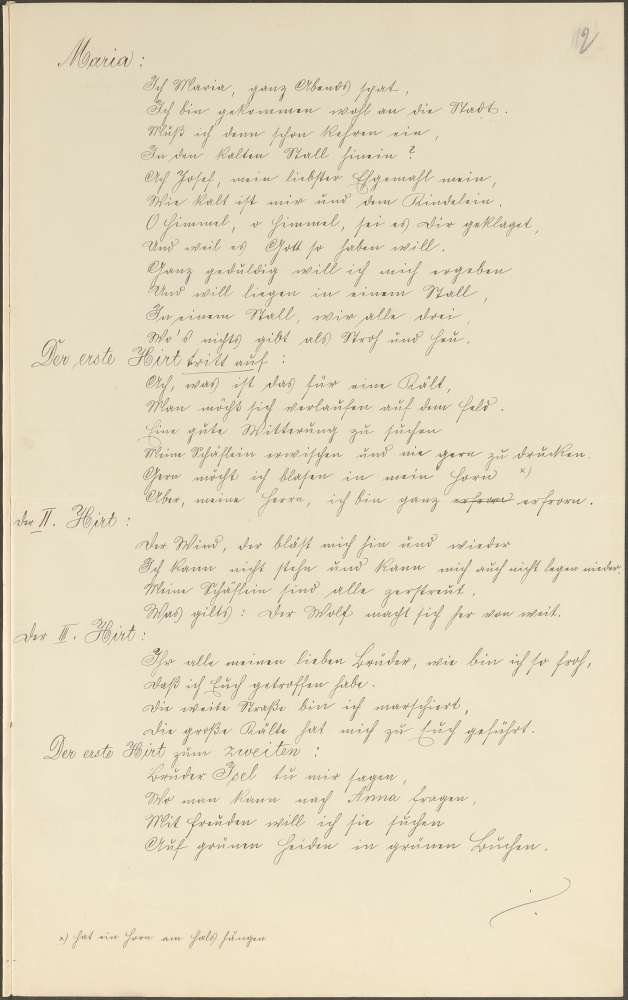 2
Maria :
Ich Maria, ganz Abends spat,
Ich bin gekommen wohl an die Stadt.
Muß ich denn schon kehren ein,
In den kalten Stall hinein ?
Ach Josef, mein liebster Ehgemahl mein,
Wie kalt ist mir und dem Kindelein.
O Himmel, o Himmel, sei es Dir geklaget,
Und weil es Gott so haben will.
Ganz geduldig will ich mich ergeben
Und will liegen in einem Stall,
In einem Stall, wir alle drei,
Wo's nichts gibt als Stroh und Heu.
Der erste Hirt tritt auf :
Ach, was ist das für eine Kält,
Man möcht sich verlaufen auf dem Feld.
Eine gute Witterung zu suchen
Meine Schäflein erwischen und nie gern zu drucken.
Gern möcht ich blasen in mein Horn x)
Aber, meine Herrn, ich bin ganz erfrorn erfrorn.
der II. Hirt :
Der Wind, der bläst mich hin und wieder
Ich kann nicht stehn und kann mich auch nicht legen nieder.
Meine Schäflein sind alle zerstreut.
Was gilts : Der Wolf macht sich her von weit.
Der III. Hirt :
Ihr alle meinen lieben Brüder, wie bin ich so froh,
Daß ich Euch getroffen habe.
Die weite Straße bin ich marschiert,
Die große Kälte hat mich zu Euch geführt.
Der erste Hirt zum zweiten :
Bruder Isel tu mir sagen,
Wo man kann nach Anna fragen,
Mit Freuden will ich sie suchen
Auf grünen Heiden in grünen Buchen.
x) hat ein Horn am Hals hängen